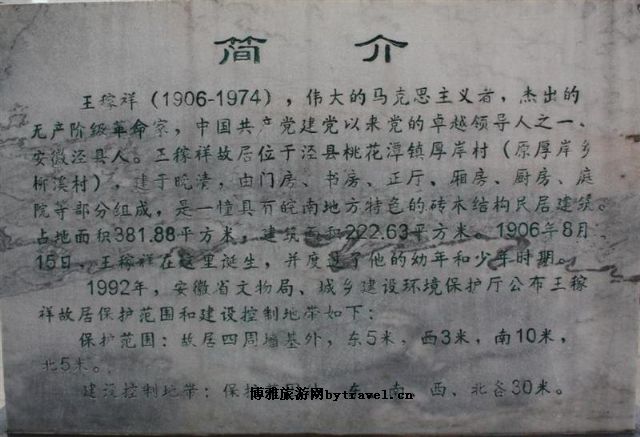 简 介
王稼祥（1906-1974），伟大的马克思主义者，杰出的
无产阶级革命家，中国共产党建党以来党的卓越领导人之一、
安徽泾县人。王稼祥故居位于泾县桃花潭镇厚岸村（原厚岸乡
柳溪村），建于晚清，由门房、书房、正厅、厢房、厨房、庭
院等部分组成，是一幢具有皖南地方特色的砖木结构民居建筑。
占地面积381.88平方米，建筑面积222.63平方米。1906年8月
15日，王稼祥在这里诞生，并度过了他的幼年和少年时期。
1992年，安徽省文物局、城乡建设环境保护厅公布王稼
祥故居保护范围和建设控制地带如下：
保护范围：故居四周墙基外，东5米，西3米，南10米，
北5米。
建设控制地带：保护 东、南、西、北各30米。
博雅旅游网bytravel.cn